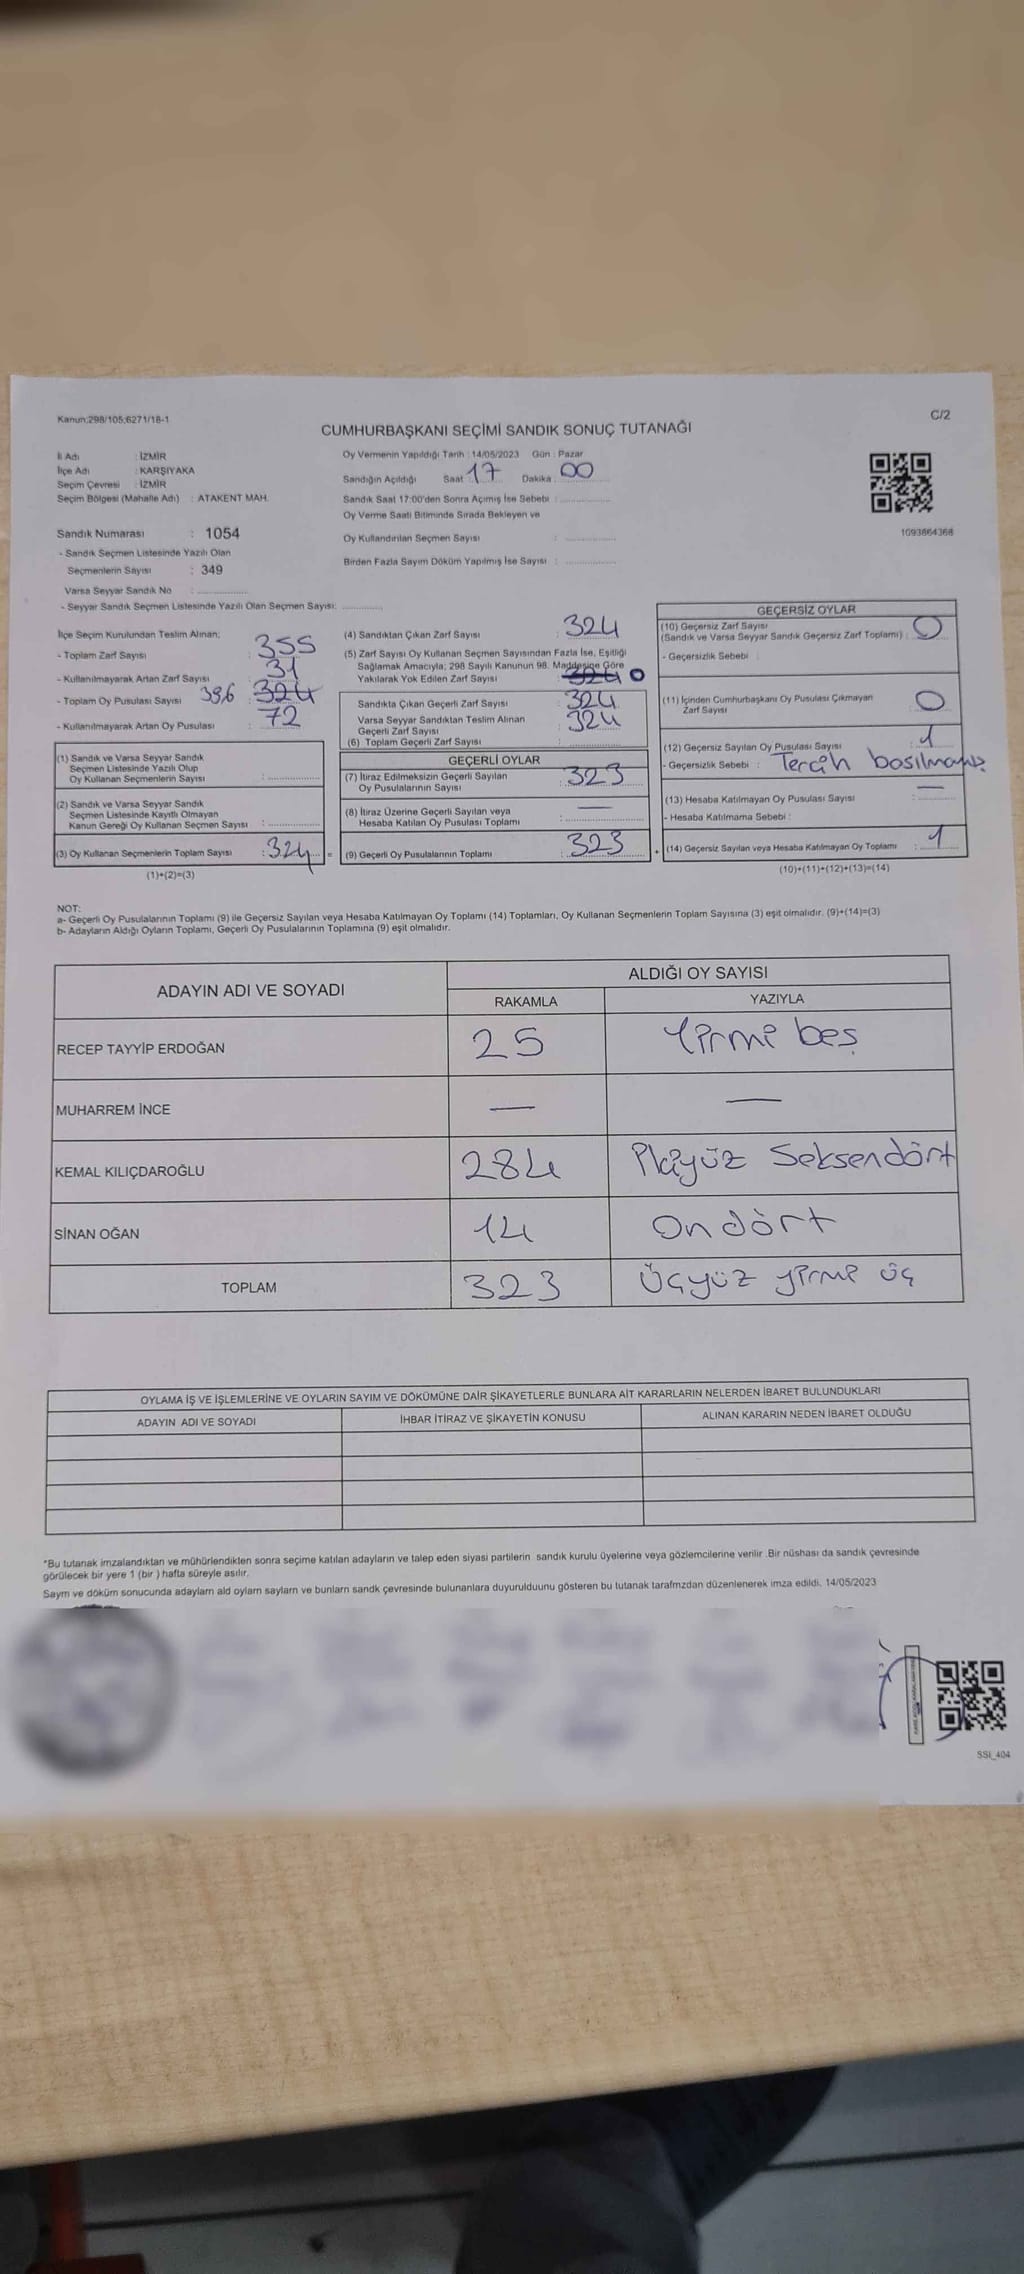 Kanun;298/105;6271/18-1
C/2
CUMHURBAŞKANI SEÇİMİ SANDIK SONUÇ TUTANAĞI
İl Adı : İZMİR
İlçe Adı : KARŞIYAKA
Seçim Çevresi : İZMİR
Seçim Bölgesi (Mahalle Adı) : ATAKENT MAH.
Sandık Numarası : 1054
- Sandık Seçmen Listesinde Yazılı Olan
Seçmenlerin Sayısı : 349
Varsa Seyyar Sandık No :
- Seyyar Sandık Seçmen Listesinde Yazılı Olan Seçmen Sayısı:
Oy Vermenin Yapıldığı Tarih : 14/05/2023 Gün : Pazar
Sandığın Açıldığı Saat : 17 Dakika : 00
Sandık Saat 17:00'den Sonra Açımış İse Sebebi :
Oy Verme Saati Bitiminde Sırada Bekleyen ve
Oy Kullandırılan Seçmen Sayısı :
Birden Fazla Sayım Döküm Yapılmış İse Sayısı :
1093864368
İlçe Seçim Kurulundan Teslim Alınan;
- Toplam Zarf Sayısı : 355
- Kullanılmayarak Artan Zarf Sayısı : 31
- Toplam Oy Pusulası Sayısı 396 324
- Kullanılmayarak Artan Oy Pusulası : 72
(1) Sandık ve Varsa Seyyar Sandık
Seçmen Listesinde Yazılı Olup
Oy Kullanan Seçmenlerin Sayısı :
(2) Sandık ve Varsa Seyyar Sandık
Seçmen Listesinde Kayıtlı Olmayan
Kanun Gereği Oy Kullanan Seçmen Sayısı :
(3) Oy Kullanan Seçmenlerin Toplam Sayısı : 324 =
(1)+(2)=(3)
(4) Sandıktan Çıkan Zarf Sayısı : 324
(5) Zarf Sayısı Oy Kullanan Seçmen Sayısından Fazla İse, Eşitliği
Sağlamak Amacıyla; 298 Sayılı Kanunun 98. Maddesine Göre
Yakılarak Yok Edilen Zarf Sayısı 324 0
Sandıkta Çıkan Geçerli Zarf Sayısı : 324
Varsa Seyyar Sandıktan Teslim Alınan
Geçerli Zarf Sayısı : 324
(6) Toplam Geçerli Zarf Sayısı :
GEÇERLİ OYLAR
(7) İtiraz Edilmeksizin Geçerli Sayılan
Oy Pusulalarının Sayısı : 323
(8) İtiraz Üzerine Geçerli Sayılan veya
Hesaba Katılan Oy Pusulası Toplamı : —
(9) Geçerli Oy Pusulalarının Toplamı : 323 +
GEÇERSİZ OYLAR
(10) Geçersiz Zarf Sayısı
(Sandık ve Varsa Seyyar Sandık Geçersiz Zarf Toplamı) : 0
- Geçersizlik Sebebi :
(11) İçinden Cumhurbaşkanı Oy Pusulası Çıkmayan
Zarf Sayısı : 0
(12) Geçersiz Sayılan Oy Pusulası Sayısı : 1
- Geçersizlik Sebebi : Tercih basılmamış
(13) Hesaba Katılmayan Oy Pusulası Sayısı : —
- Hesaba Katılmama Sebebi :
(14) Geçersiz Sayılan veya Hesaba Katılmayan Oy Toplamı : 1
(10)+(11)+(12)+(13)=(14)
NOT:
a- Geçerli Oy Pusulalarının Toplamı (9) ile Geçersiz Sayılan veya Hesaba Katılmayan Oy Toplamı (14) Toplamları, Oy Kullanan Seçmenlerin Toplam Sayısına (3) eşit olmalıdır. (9)+(14)=(3)
b- Adayların Aldığı Oyların Toplamı, Geçerli Oy Pusulalarının Toplamına (9) eşit olmalıdır.
ADAYIN ADI VE SOYADI
ALDIĞI OY SAYISI
RAKAMLA YAZIYLA
RECEP TAYYİP ERDOĞAN 25 Yirmi beş
MUHARREM İNCE — —
KEMAL KILIÇDAROĞLU 284 İkiyüz Seksendört
SİNAN OĞAN 14 Ondört
TOPLAM 323 Üçyüz yirmi üç
OYLAMA İŞ VE İŞLEMLERİNE VE OYLARIN SAYIM VE DÖKÜMÜNE DAİR ŞİKAYETLERLE BUNLARA AİT KARARLARIN NELERDEN İBARET BULUNDUKLARI
ADAYIN ADI VE SOYADI İHBAR İTİRAZ VE ŞİKAYETİN KONUSU ALINAN KARARIN NEDEN İBARET OLDUĞU
*Bu tutanak imzalandıktan ve mühürlendikten sonra seçime katılan adayların ve talep eden siyasi partilerin sandık kurulu üyelerine veya gözlemcilerine verilir .Bir nüshası da sandık çevresinde
görülecek bir yere 1 (bir ) hafta süreyle asılır.
Sayım ve döküm sonucunda adayların ald oyların sayların ve bunların sandk çevresinde bulunanlara duyurulduunu gösteren bu tutanak tarafmzdan düzenlenerek imza edildi. 14/05/2023
SSI_404